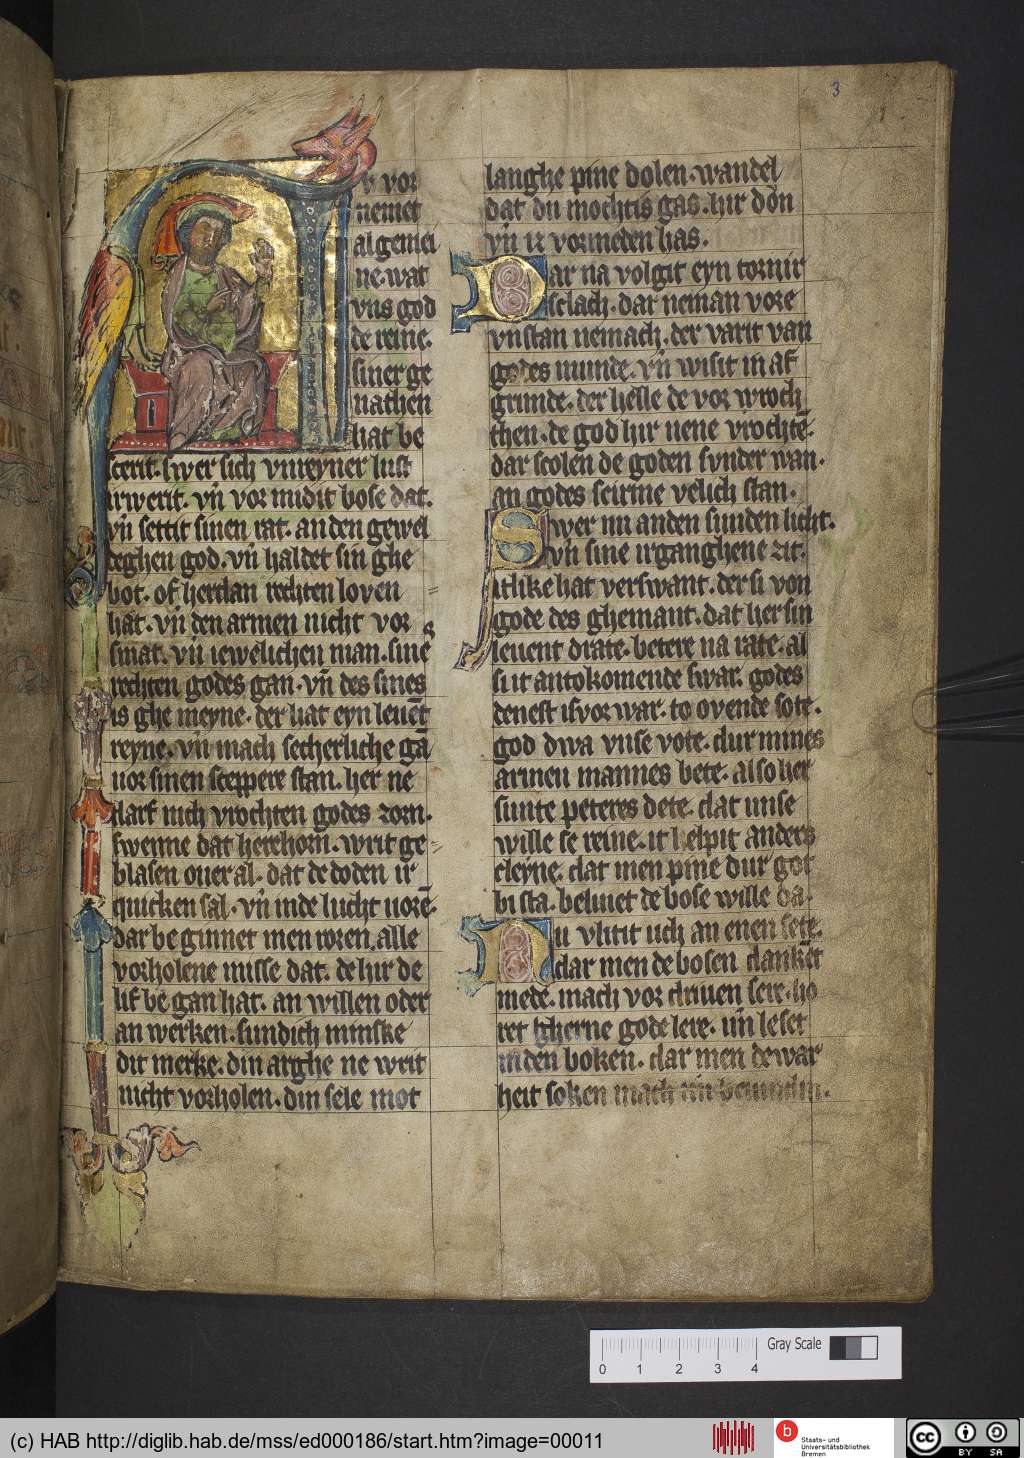 3
Nv vor
nemet
al gemei
ne. wat
vns god
de reine.
siner ge
nathen
hat be
scerit. swer sich vnreyner lust
irwerit. vn̄ vor midit bose dat.
vn̄ settit sinen rat. an den gewel
deghen god. vn̄ haldet sin ghe
bot. of her dan rechten loven
hat. vn̄ den armen nicht vor
smat. vn̄ iewelichen man. sine
rechten godes gan. vn̄ des sines
is ghe meyne. der hat eyn leuēt
reyne. vn̄ mach secherliche gā
uor sinen sceppere stan. her ne
darf nich vrochten godes zorn.
swenne dat herehorn. writ ge
blasen ouer al. dat de doden ir
quicken sal. vn̄ inde lucht uorē.
dar be ginnet men roren. alle
vorholene misse dat. de hir de
lif be gan hat. an willen oder
an werken. sundich minske
dit merke. din arghe ne writ
nicht vorholen. din sele mot
langhe pine dolen. wandel
dat du mochtis gas. hir don
vn̄ iz vormeden has.
Dar na volgit eyn tornir
slach. dar neman vore
vnstan nemach. der varit van
godes munde. vn̄ wisit in af
grunde. der helle de vor wroch
then. de god hir nene vrochtē.
dar scolen de goden svnder wan.
an godes scirme velich stan.
Swer nu anden sunden licht.
vn̄ sine irganghene zit.
itlike hat verswant. der si von
gode des ghemant. dat her sin
leuent drate. betere na rate. al
si it antokomende swar. godes
denest is vor war. to ovende sote.
god dwa vnse vote. dur mines
armen mannes bete. also her
sunte peteres dete. dat unse
wille se reine. it helpit anders
cleyne. dat men pine dur got
bi sta. beliuet de bose wille da.
Nu vlitit uch an enen sete.
dar men de bosen danket
mede. mach vor driuen sere. ho
ret gherne gode lere. vn̄ leset
inden boken. dar men de war
heit soken mach
Gray Scale
0 1 2 3 4
(c) HAB http://diglib.hab.de/mss/ed000186/start.htm?image=00011
b
Staats- und
Universitätsbibliothek
Bremen
cc
BY SA